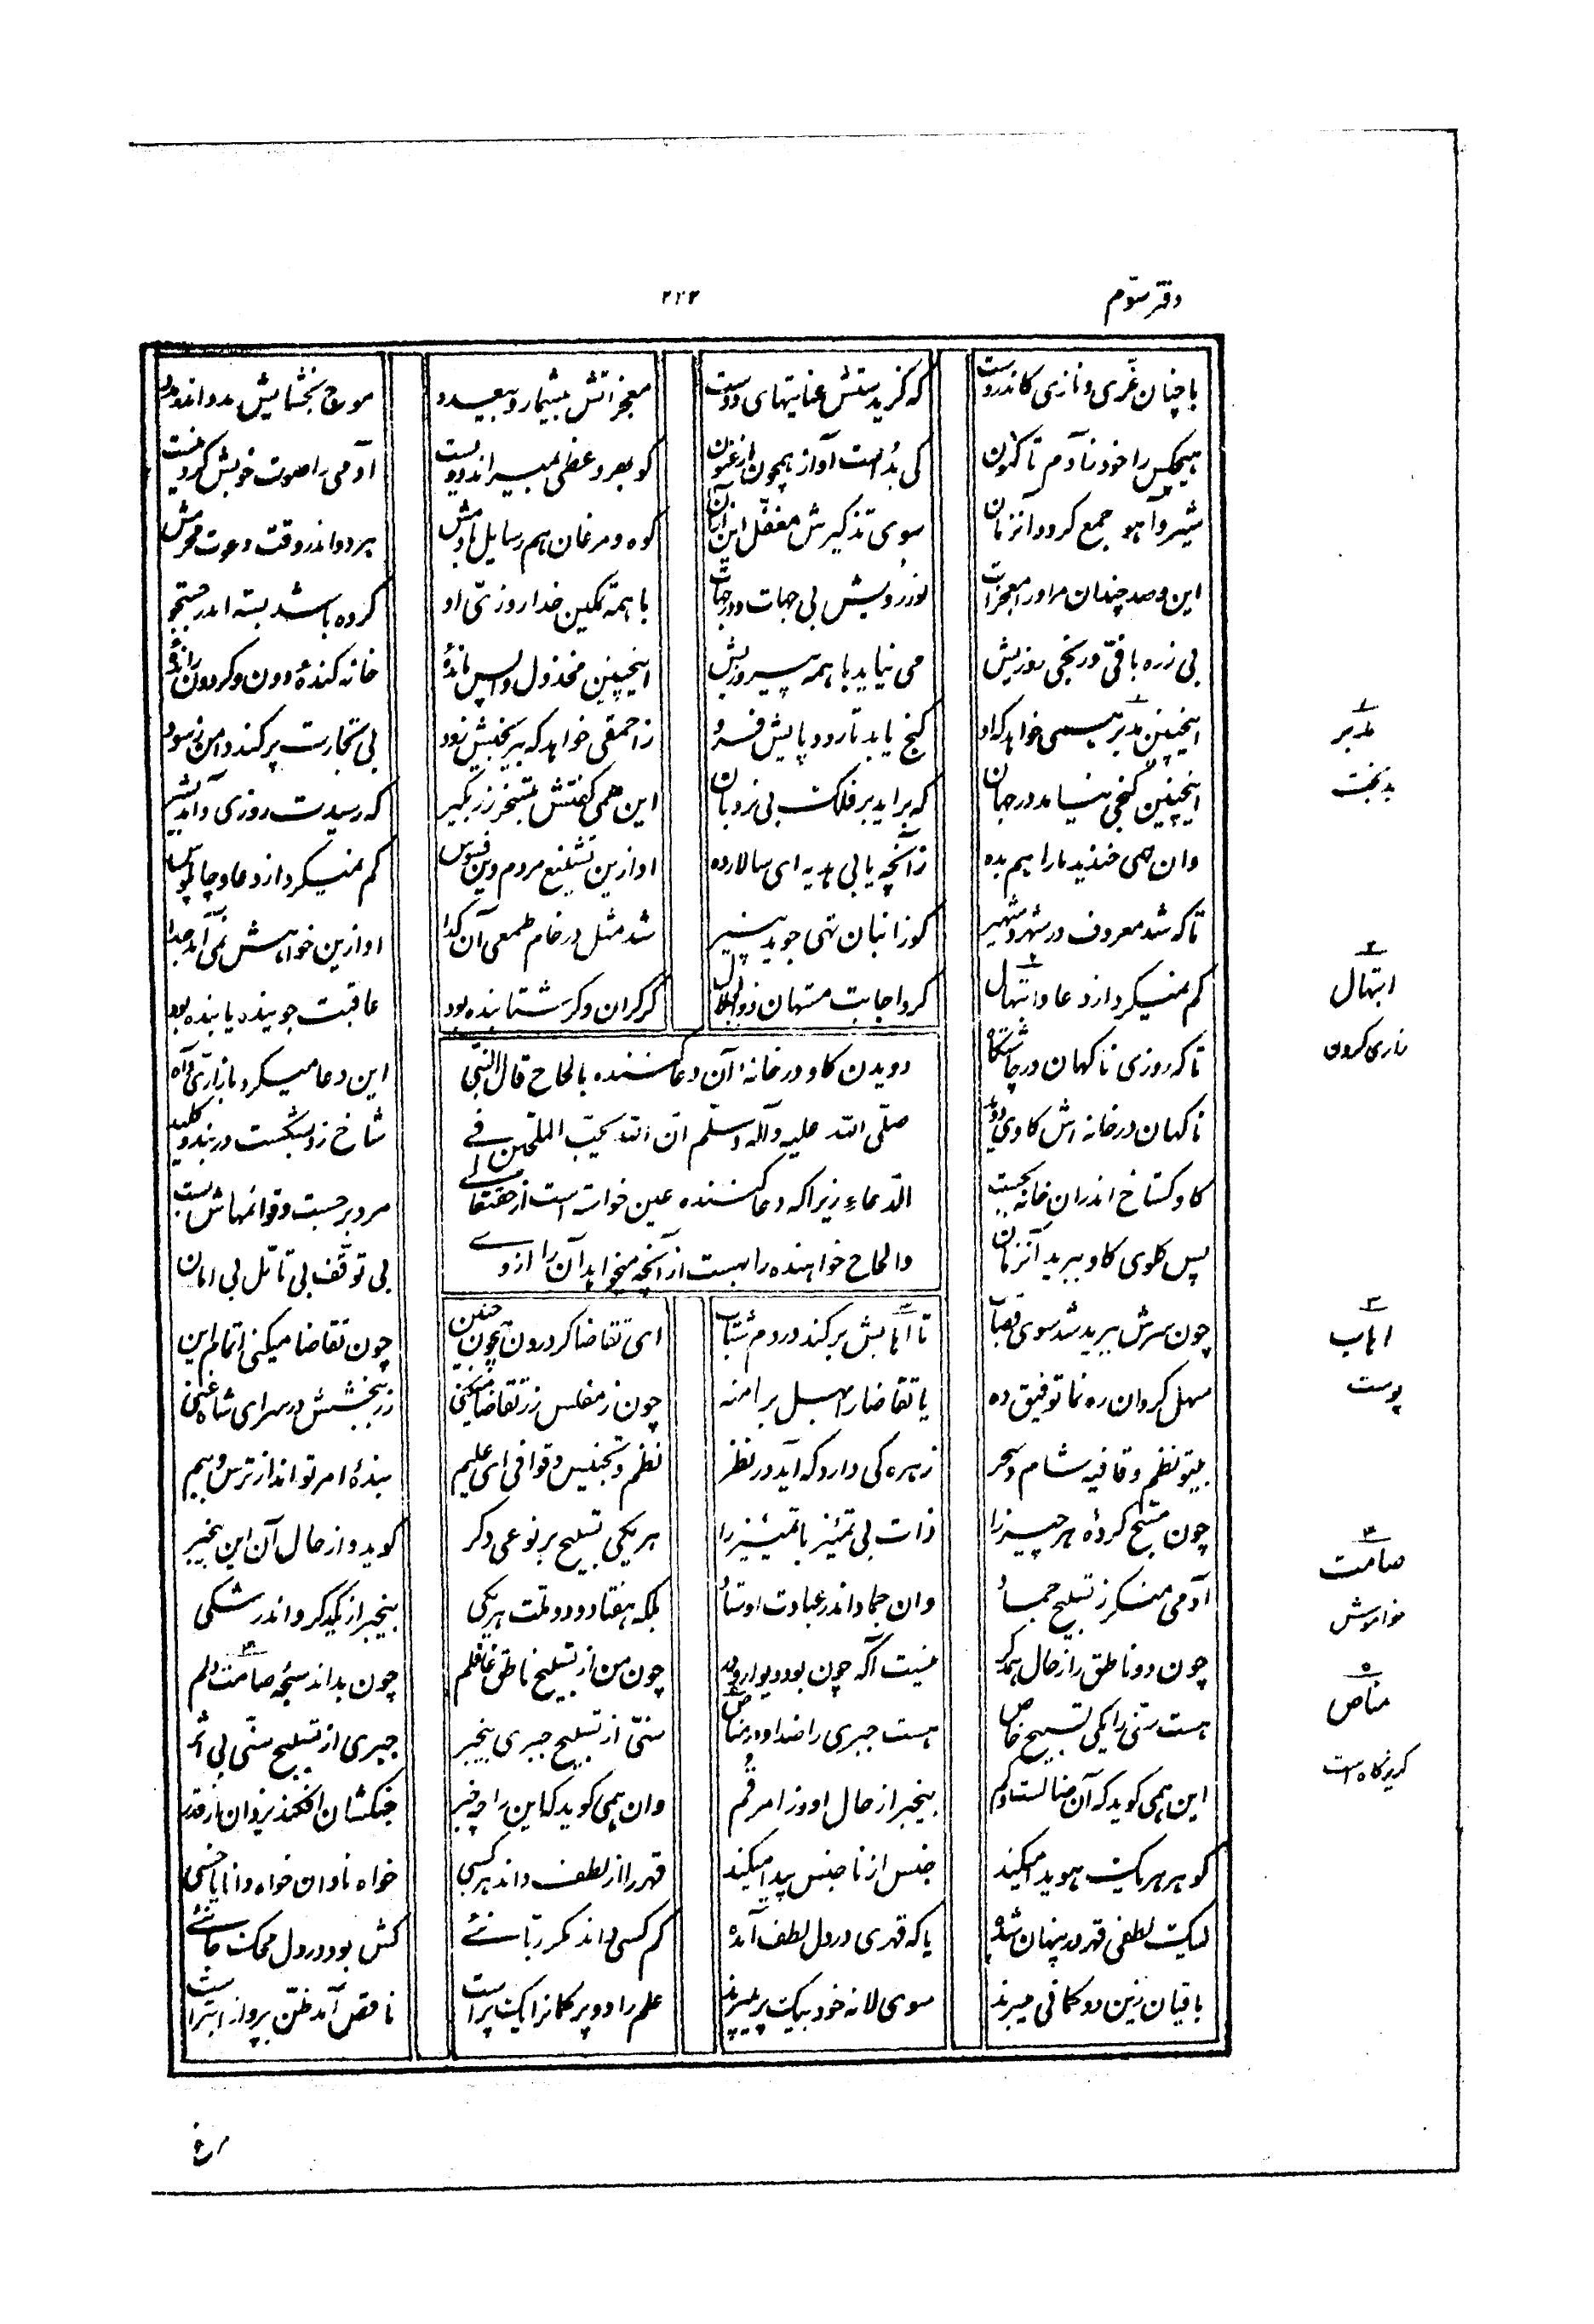 دفتر سوّم
۲۲۳
با چنان عزّی و نازی کاندروست که گزیدستش عنایتهای دوست معجزاتش بیشمار و بیعدد موج بخشایش مدد اندر مدد
هیچکس را خود ز آدم تا کنون کی بُدست آواز همچون ارغنون کو بهر وعظی بمیراند دویست آدمی را صوت خوبش کرد نیست
شیر و آهو جمع گردد آنزمان سوی تذکیرش مغفّل این از آن کوه و مرغان هم رسایل با دمش هر دو اندر وقت دعوت محرمش
این و صد چندان مر او را معجزات نور رویش بی جهات و در جهات با همه تمکین خدا روزیّ او کرده باشد بسته اندر جستجو
بی زره بافیّ و رنجی روزیش می نیاید با همه پیروزیش اینچنین مخذول واپس ماندهٔ خانه کندهٔ دون و گردون راندهٔ
اینچنین مدبر همی خواهد که او گنج یابد تا رود پایش فرو ز احمقی خواهد که بیرنجیش زود بی تجارت پر کند دامن ز سود
اینچنین گنجی نیامد در جهان که براید بر فلک بی نردبان این همی گفتش بتسخر زر بگیر که رسیدت روزی و آمد بشیر
وان همی خندید ما را هم بده زآنچه یابی هدیه ای سالار ده او ازین تشنیع مردم وین فسوس کم نمیکرد از دعا و چاپلوس
تا که شد معروف در شهر و شهیر کو ز انبان تهی جوید پنیر شد مثل در خام طمعی آن گدا او ازین خواهش نمی آمد جدا
کم نمیکرد از دعا و ابتهال کرد اجابت مستعان ذوالجلال گر گران و گر شتابنده بود عاقبت جوینده یابنده بود
تا که روزی ناگهان در چاشتگاه این دعا میکرد با زاریّ و آه
ناگهان در خانه اش گاوی دوید شاخ زد بشکست دربند و کلید
گاو گستاخ اندران خانه بجست مرد برجست و قوائمهاش بست
پس گلوی گاو ببرید آنزمان بی توقّف بی تامّل بی امان
دویدن گاو در خانهٔ آن دعا کننده بالحاح قال النّبی
صلّی الله علیه وآله وسلّم انّ الله یحبّ الملحّین فے
الدّعاء زیرا که دعا کننده عین خواست است از حقتعالے
والحاح خواهنده را بهست از آنچه میخواهد آن را ازوے
چون سرش ببرید شد سوی قصاب تا اهابش برکند در دم شتاب ای تقاضا گر درون همچون جنین چون تقاضا میکنی اتمام این
سهل گردان ره نما توفیق ده یا تقاضا را بهل بر ما منه چون ز مفلس زر تقاضا میکنی زر ببخشش در سرای شاه غنی
بیتو نظم و قافیه شام و سحر زهره کی دارد که آید در نظر نظم و تجنیس و قوافی ای علیم بندهٔ امر تواند از ترس و بیم
چون مسبّح کردهٔ هر چیز را ذات بی تمییز با تمییز را هر یکی تسبیح بر نوعی دگر گوید و از حال آن این بیخبر
آدمی منکر ز تسبیح جماد وان جماد اندر عبادت اوستاد بلکه هفتاد و دو ملّت هر یکی بیخبر از یکدگر و اندر شکی
چون دو ناطق را ز حال همدگر نیست آگه چون بود دیوار و در چون من از تسبیح ناطق غافلم چون بداند سبحهٔ صامت دلم
هست سنّی را یکی تسبیح خاص هست جبری را ضد او در مناص سنّی از تسبیح جبری بیخبر جبری از تسبیح سنّی بی اثر
این همی گوید که آن ضالست و گم بیخبر از حال او وز امر قُم وان همی گوید که این را چه خبر جنگشان افکند یزدان از قدر
گوهر هر یک هویدا میکند جنس از ناجنس پیدا میکند قهر را از لطف داند هر کسی خواه نادان خواه دانا یا خسی
لیک لطفی قهر در پنهان شده یا که قهری در دل لطف آمده کم کسی داند مگر ربّانئے کش بود در دل محک جانئے
باقیان زین دو گمانی میبرند سوی لانه خود بیک پر میپرند علم را دو پر گمانرا یک پر است ناقص آمد ظنّ بپرواز ابتر است
۱
مدبر
بدبخت
۲
ابتهال
زاری کردن
۳
اهاب
پوست
۴
صامت
خواموش
۵
مناص
گریزگاه است